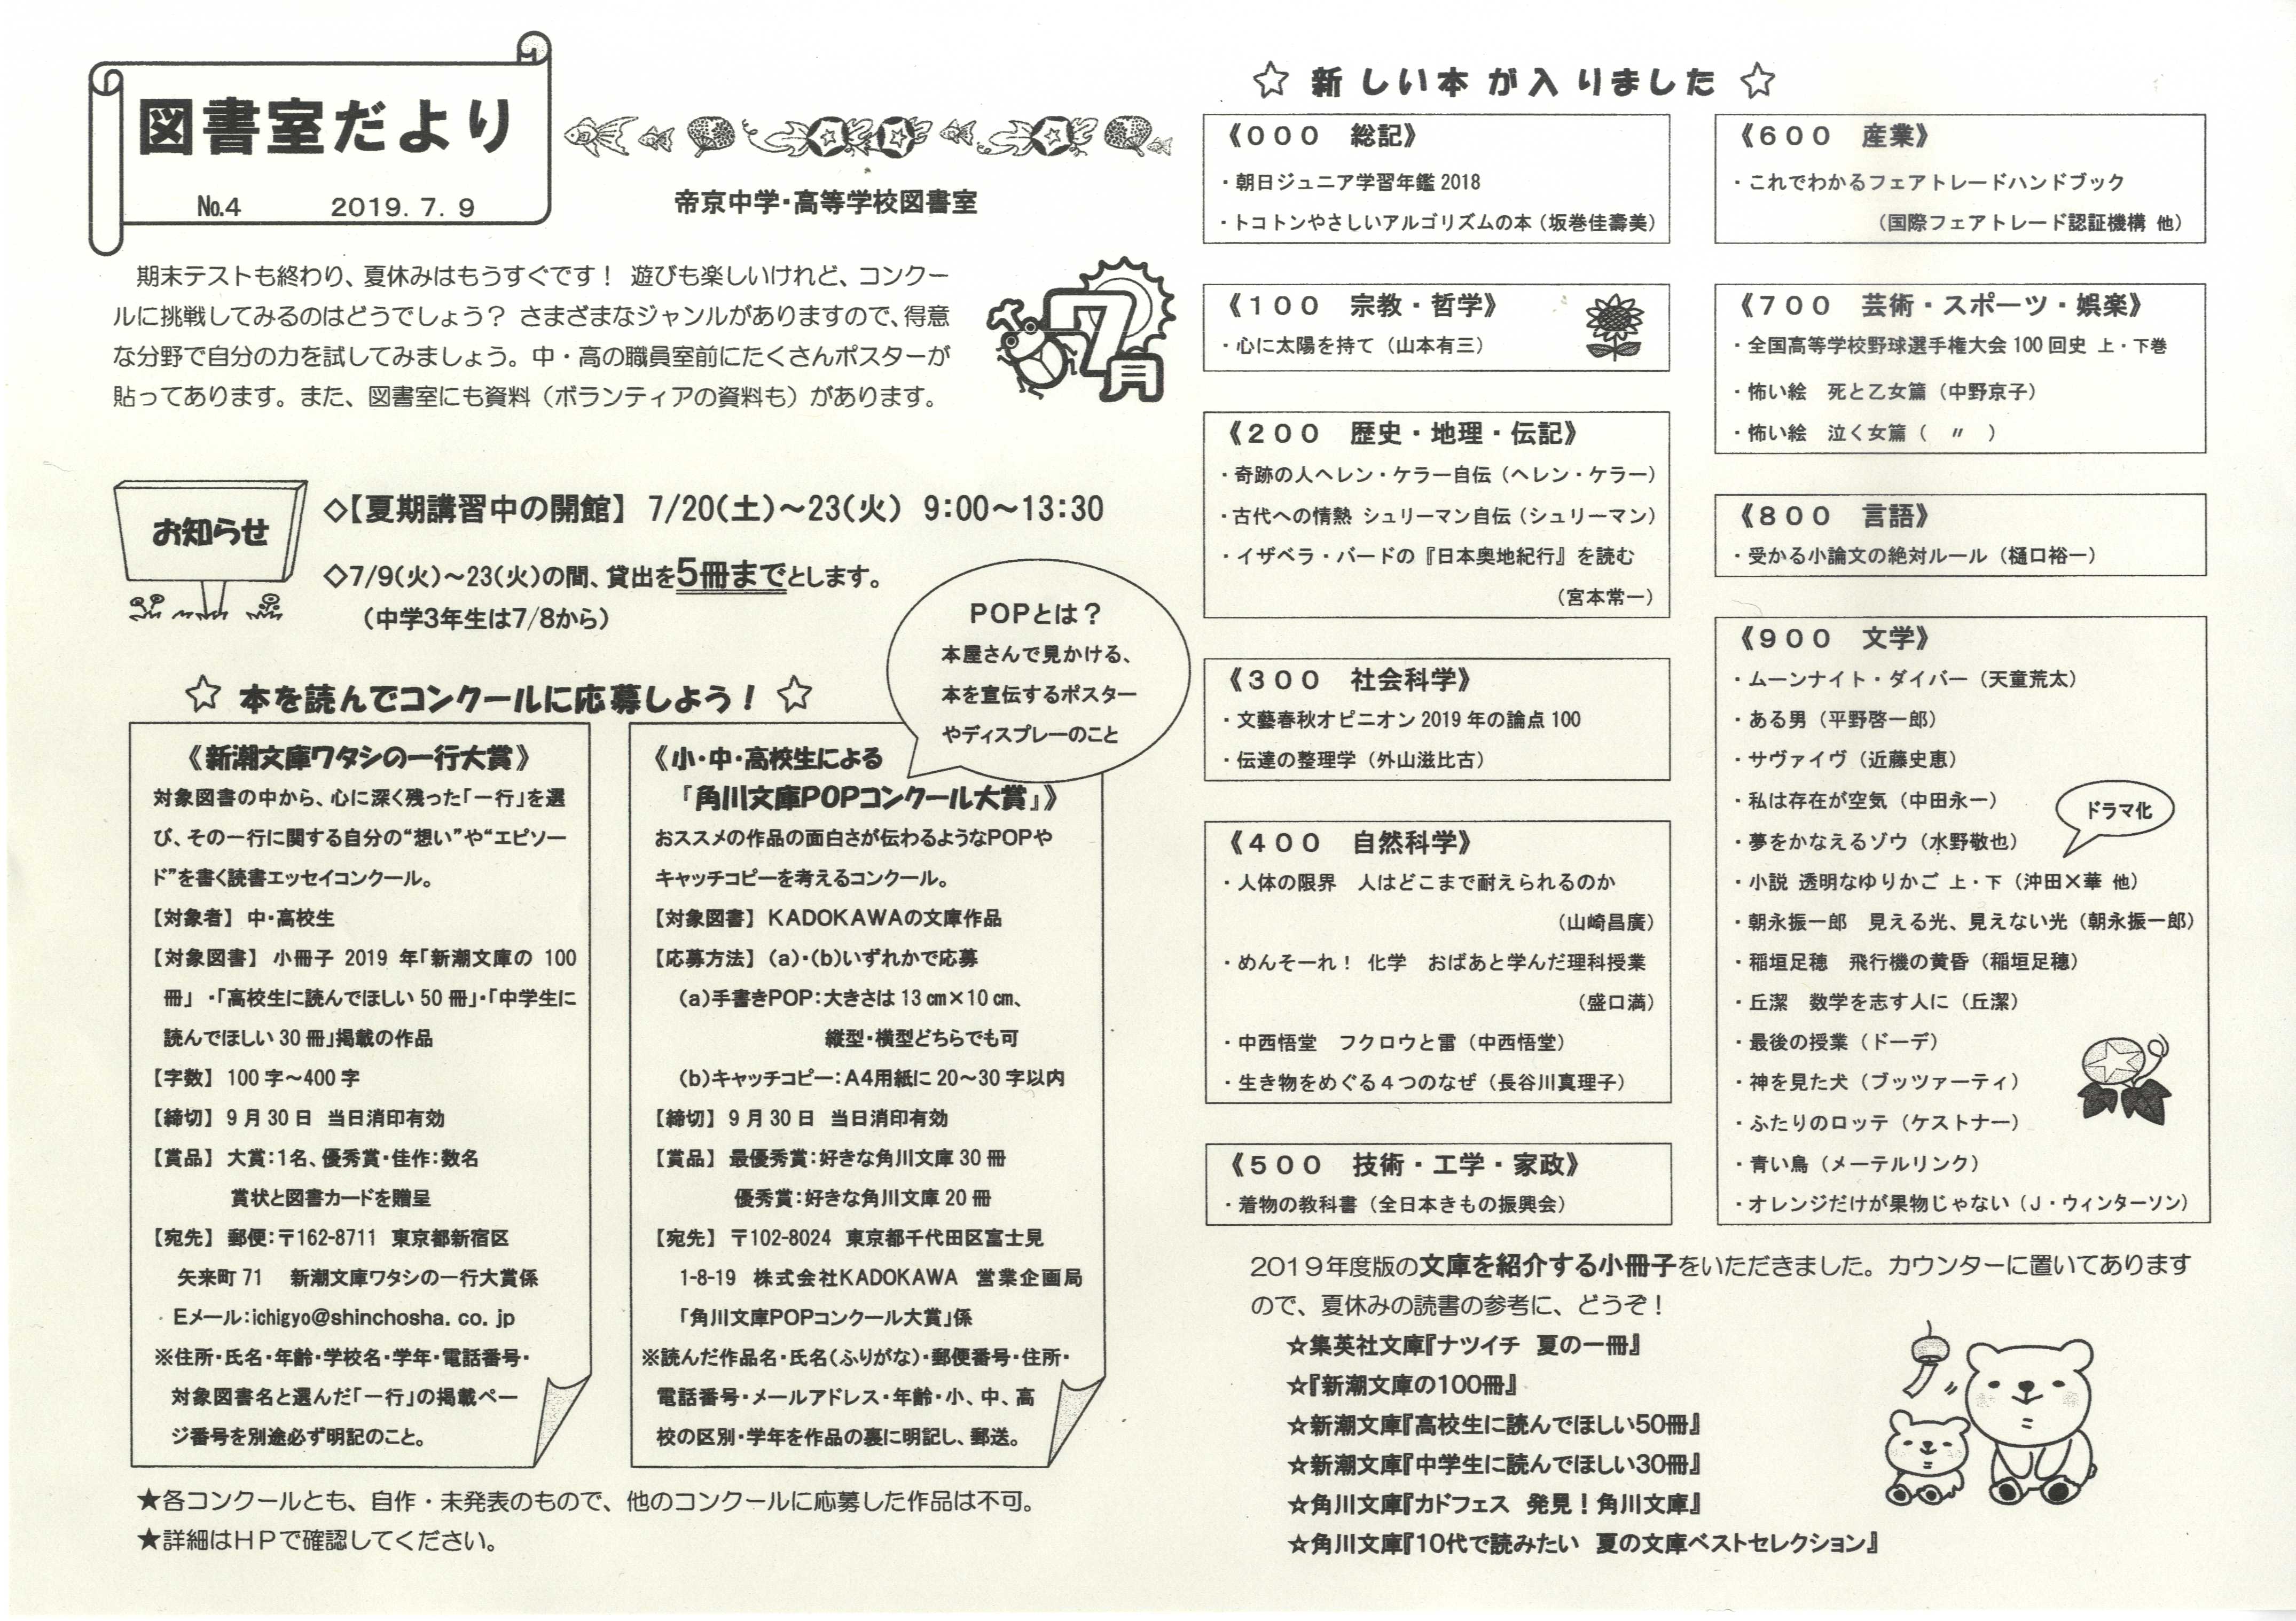 図書室だより
№4　2019. 7. 9
帝京中学・高等学校図書室
期末テストも終わり、夏休みはもうすぐです！ 遊びも楽しいけれど、コンクー
ルに挑戦してみるのはどうでしょう？ さまざまなジャンルがありますので、得意
な分野で自分の力を試してみましょう。中・高の職員室前にたくさんポスターが
貼ってあります。また、図書室にも資料（ボランティアの資料も）があります。
7月
お知らせ
◇【夏期講習中の開館】 7/20(土)～23(火) 9:00～13:30
◇7/9(火)～23(火)の間、貸出を5冊までとします。
（中学3年生は7/8から）
POPとは？
本屋さんで見かける、
本を宣伝するポスター
やディスプレーのこと
☆ 本を読んでコンクールに応募しよう！ ☆
《新潮文庫ワタシの一行大賞》
対象図書の中から、心に深く残った「一行」を選
び、その一行に関する自分の“想い”や“エピソー
ド”を書く読書エッセイコンクール。
【対象者】 中・高校生
【対象図書】 小冊子 2019 年「新潮文庫の 100
冊」・「高校生に読んでほしい 50 冊」・「中学生に
読んでほしい 30 冊」掲載の作品
【字数】 100 字～400 字
【締切】 9 月 30 日 当日消印有効
【賞品】 大賞：1名、優秀賞・佳作：数名
賞状と図書カードを贈呈
【宛先】 郵便：〒162-8711 東京都新宿区
矢来町 71　新潮文庫ワタシの一行大賞係
Eメール：ichigyo@shinchosha. co. jp
※住所・氏名・年齢・学校名・学年・電話番号・
対象図書名と選んだ「一行」の掲載ペー
ジ番号を別途必ず明記のこと。
《小・中・高校生による
「角川文庫POPコンクール大賞」》
おススメの作品の面白さが伝わるようなPOPや
キャッチコピーを考えるコンクール。
【対象図書】 KADOKAWAの文庫作品
【応募方法】 (a)・(b)いずれかで応募
(a)手書きPOP：大きさは 13 ㎝×10 ㎝、
縦型・横型どちらでも可
(b)キャッチコピー：A4用紙に 20～30 字以内
【締切】 9 月 30 日 当日消印有効
【賞品】 最優秀賞：好きな角川文庫 30 冊
優秀賞：好きな角川文庫 20 冊
【宛先】 〒102-8024 東京都千代田区富士見
1-8-19 株式会社KADOKAWA 営業企画局
「角川文庫POPコンクール大賞」係
※読んだ作品名・氏名(ふりがな)・郵便番号・住所・
電話番号・メールアドレス・年齢・小、中、高
校の区別・学年を作品の裏に明記し、郵送。
★各コンクールとも、自作・未発表のもので、他のコンクールに応募した作品は不可。
★詳細はＨＰで確認してください。
☆ 新しい本が入りました ☆
《０００　総記》
・朝日ジュニア学習年鑑 2018
・トコトンやさしいアルゴリズムの本（坂巻佳壽美）
《１００　宗教・哲学》
・心に太陽を持て（山本有三）
《２００　歴史・地理・伝記》
・奇跡の人ヘレン・ケラー自伝（ヘレン・ケラー）
・古代への情熱 シュリーマン自伝（シュリーマン）
・イザベラ・バードの『日本奥地紀行』を読む
（宮本常一）
《３００　社会科学》
・文藝春秋オピニオン 2019 年の論点 100
・伝達の整理学（外山滋比古）
《４００　自然科学》
・人体の限界　人はどこまで耐えられるのか
（山崎昌廣）
・めんそーれ！ 化学　おばあと学んだ理科授業
（盛口満）
・中西悟堂　フクロウと雷（中西悟堂）
・生き物をめぐる４つのなぜ（長谷川真理子）
《５００　技術・工学・家政》
・着物の教科書（全日本きもの振興会）
《６００　産業》
・これでわかるフェアトレードハンドブック
（国際フェアトレード認証機構 他）
《７００　芸術・スポーツ・娯楽》
・全国高等学校野球選手権大会 100 回史 上・下巻
・怖い絵　死と乙女篇（中野京子）
・怖い絵　泣く女篇（　〃　）
《８００　言語》
・受かる小論文の絶対ルール（樋口裕一）
《９００　文学》
・ムーンナイト・ダイバー（天童荒太）
・ある男（平野啓一郎）
・サヴァイヴ（近藤史恵）
・私は存在が空気（中田永一）
・夢をかなえるゾウ（水野敬也）
ドラマ化
・小説 透明なゆりかご 上・下（沖田×華 他）
・朝永振一郎　見える光、見えない光（朝永振一郎）
・稲垣足穂　飛行機の黄昏（稲垣足穂）
・丘潔　数学を志す人に（丘潔）
・最後の授業（ドーデ）
・神を見た犬（ブッツァーティ）
・ふたりのロッテ（ケストナー）
・青い鳥（メーテルリンク）
・オレンジだけが果物じゃない（Ｊ・ウィンターソン）
２０１９年度版の文庫を紹介する小冊子をいただきました。カウンターに置いてあります
ので、夏休みの読書の参考に、どうぞ！
☆集英社文庫『ナツイチ　夏の一冊』
☆『新潮文庫の100冊』
☆新潮文庫『高校生に読んでほしい50冊』
☆新潮文庫『中学生に読んでほしい30冊』
☆角川文庫『カドフェス　発見！角川文庫』
☆角川文庫『10代で読みたい　夏の文庫ベストセレクション』